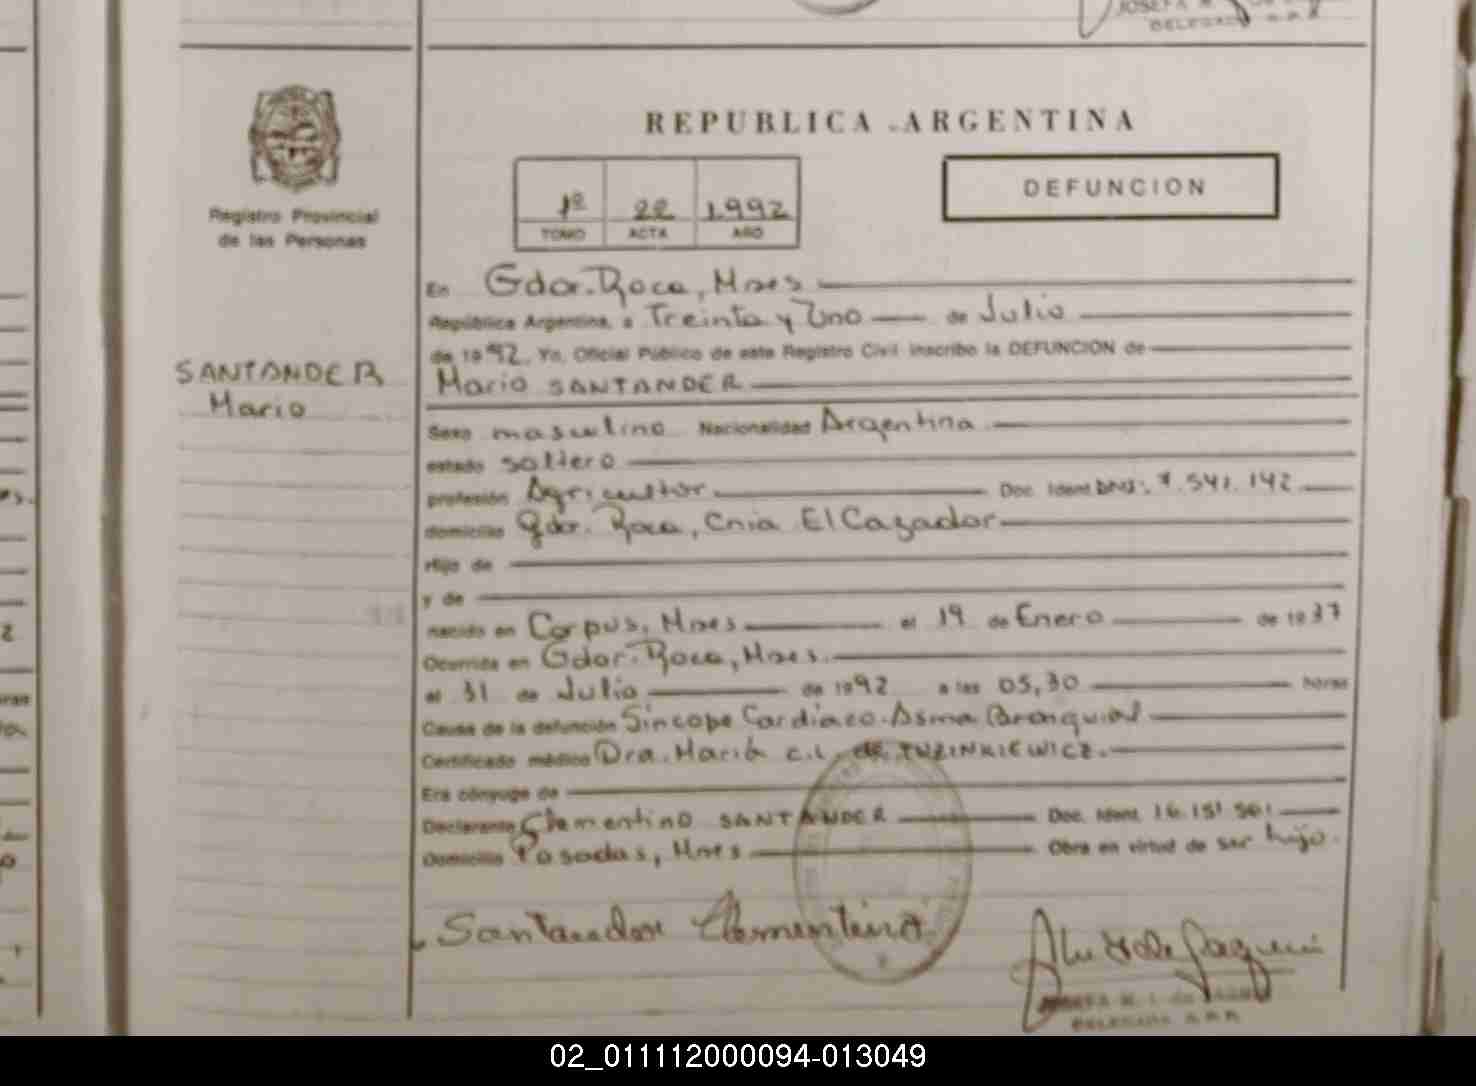 JOSEFA M.
DELEGADA
REPUBLICA ARGENTINA
DEFUNCION
1º 22 1.992
TOMO ACTA AÑO
Registro Provincial
de las Personas
SANTANDER
Mario
En Gdor. Roca, Mnes
República Argentina, a Treinta y Uno de Julio
de 1992. Yo, Oficial Público de este Registro Civil inscribo la DEFUNCION de
Mario SANTANDER
Sexo masculino Nacionalidad Argentina
estado soltero
profesión Agricultor Doc. Ident. DNI: 7.541.142
domicilio Gdor. Roca, Cnia El Cazador
Hijo de
y de
nacido en Corpus, Mnes el 19 de Enero de 1937
Ocurrida en Gdor. Roca, Mnes.
el 31 de Julio de 1992 a las 05,30 horas
Causa de la defunción Sincope Cardiaco. Asma Bronquial
Certificado médico Dra. María C.L. de TUZINKIEWICZ.
Era cónyuge de
Declarante Clementino SANTANDER Doc. Ident. 16.151.561
Domicilio Posadas, Mnes Obra en virtud de ser hijo.
Santander Clementino
JOSEFA M. I. de
DELEGADA
02_011112000094-013049